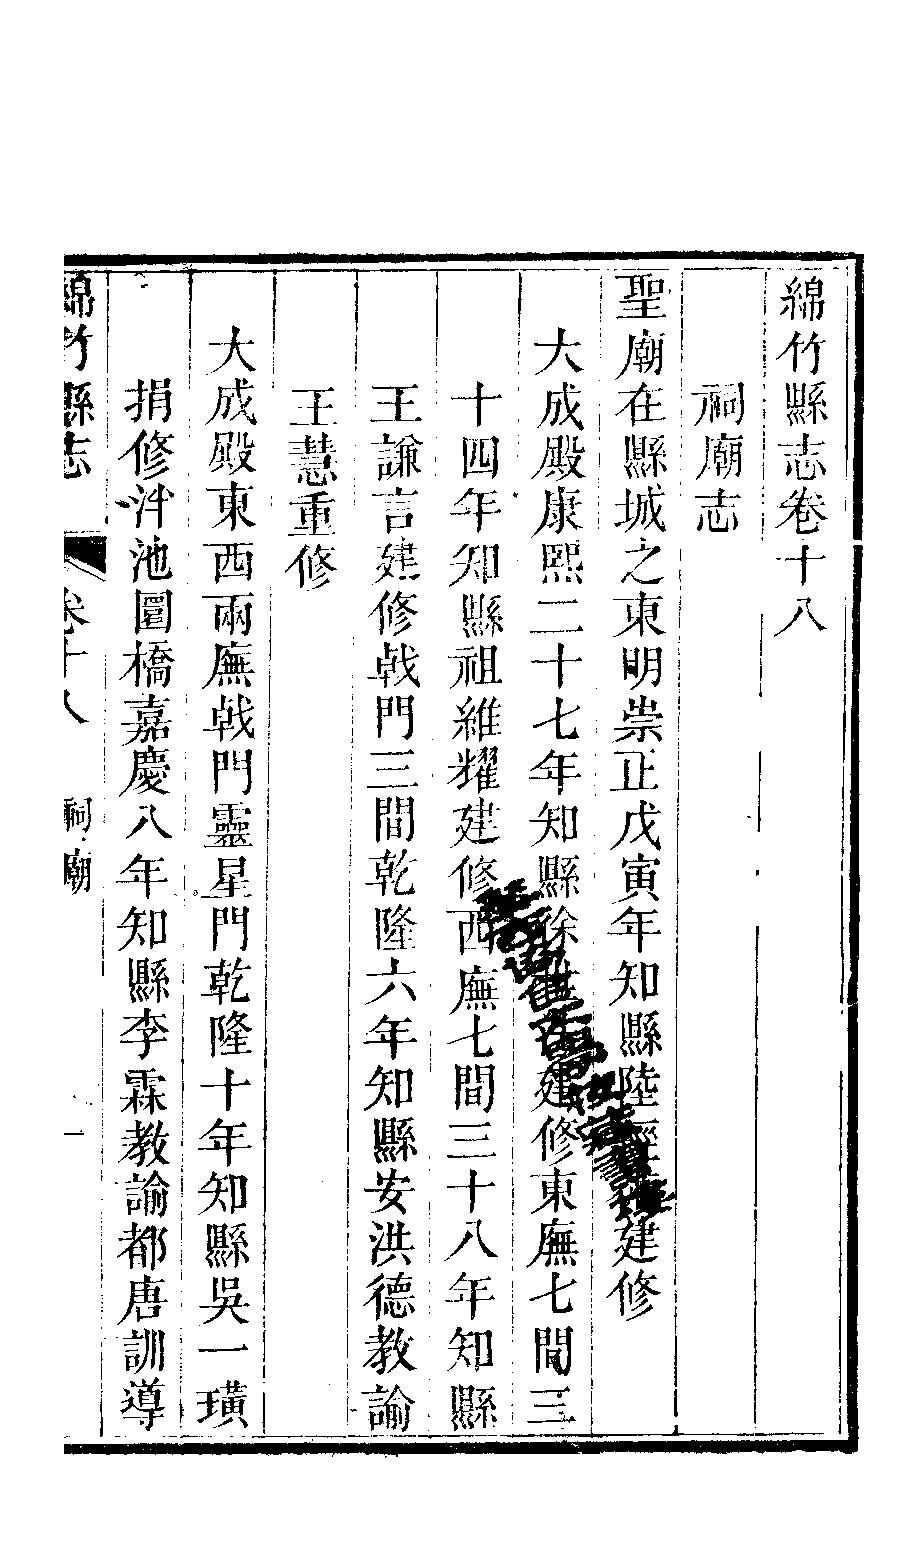 綿竹縣志卷十八
祠廟志
聖廟在縣城之東明崇正戊寅年知縣陸建修
大成殿康熙二十七年知縣徐建修東廡七間三
十四年知縣祖維耀建修西廡七間三十八年知縣
王謙言建修戟門三間乾隆六年知縣安洪德教諭
王慧重修
大成殿東西兩廡戟門靈星門乾隆十年知縣吳一璜
捐修泮池圜橋嘉慶八年知縣李霖教諭都唐訓導
綿竹縣志 卷十八 祠廟 一